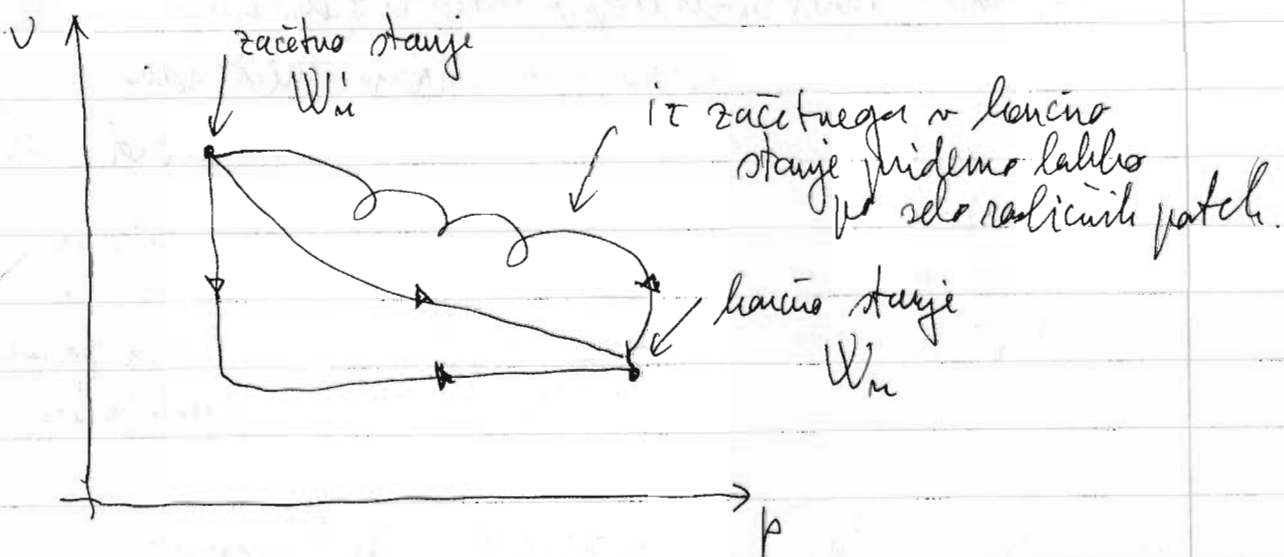 V
začetno stanje
W'n
iz začetnega v končno
stanje pridemo lahko
po zelo različnih poteh.
končno stanje
Wn
p